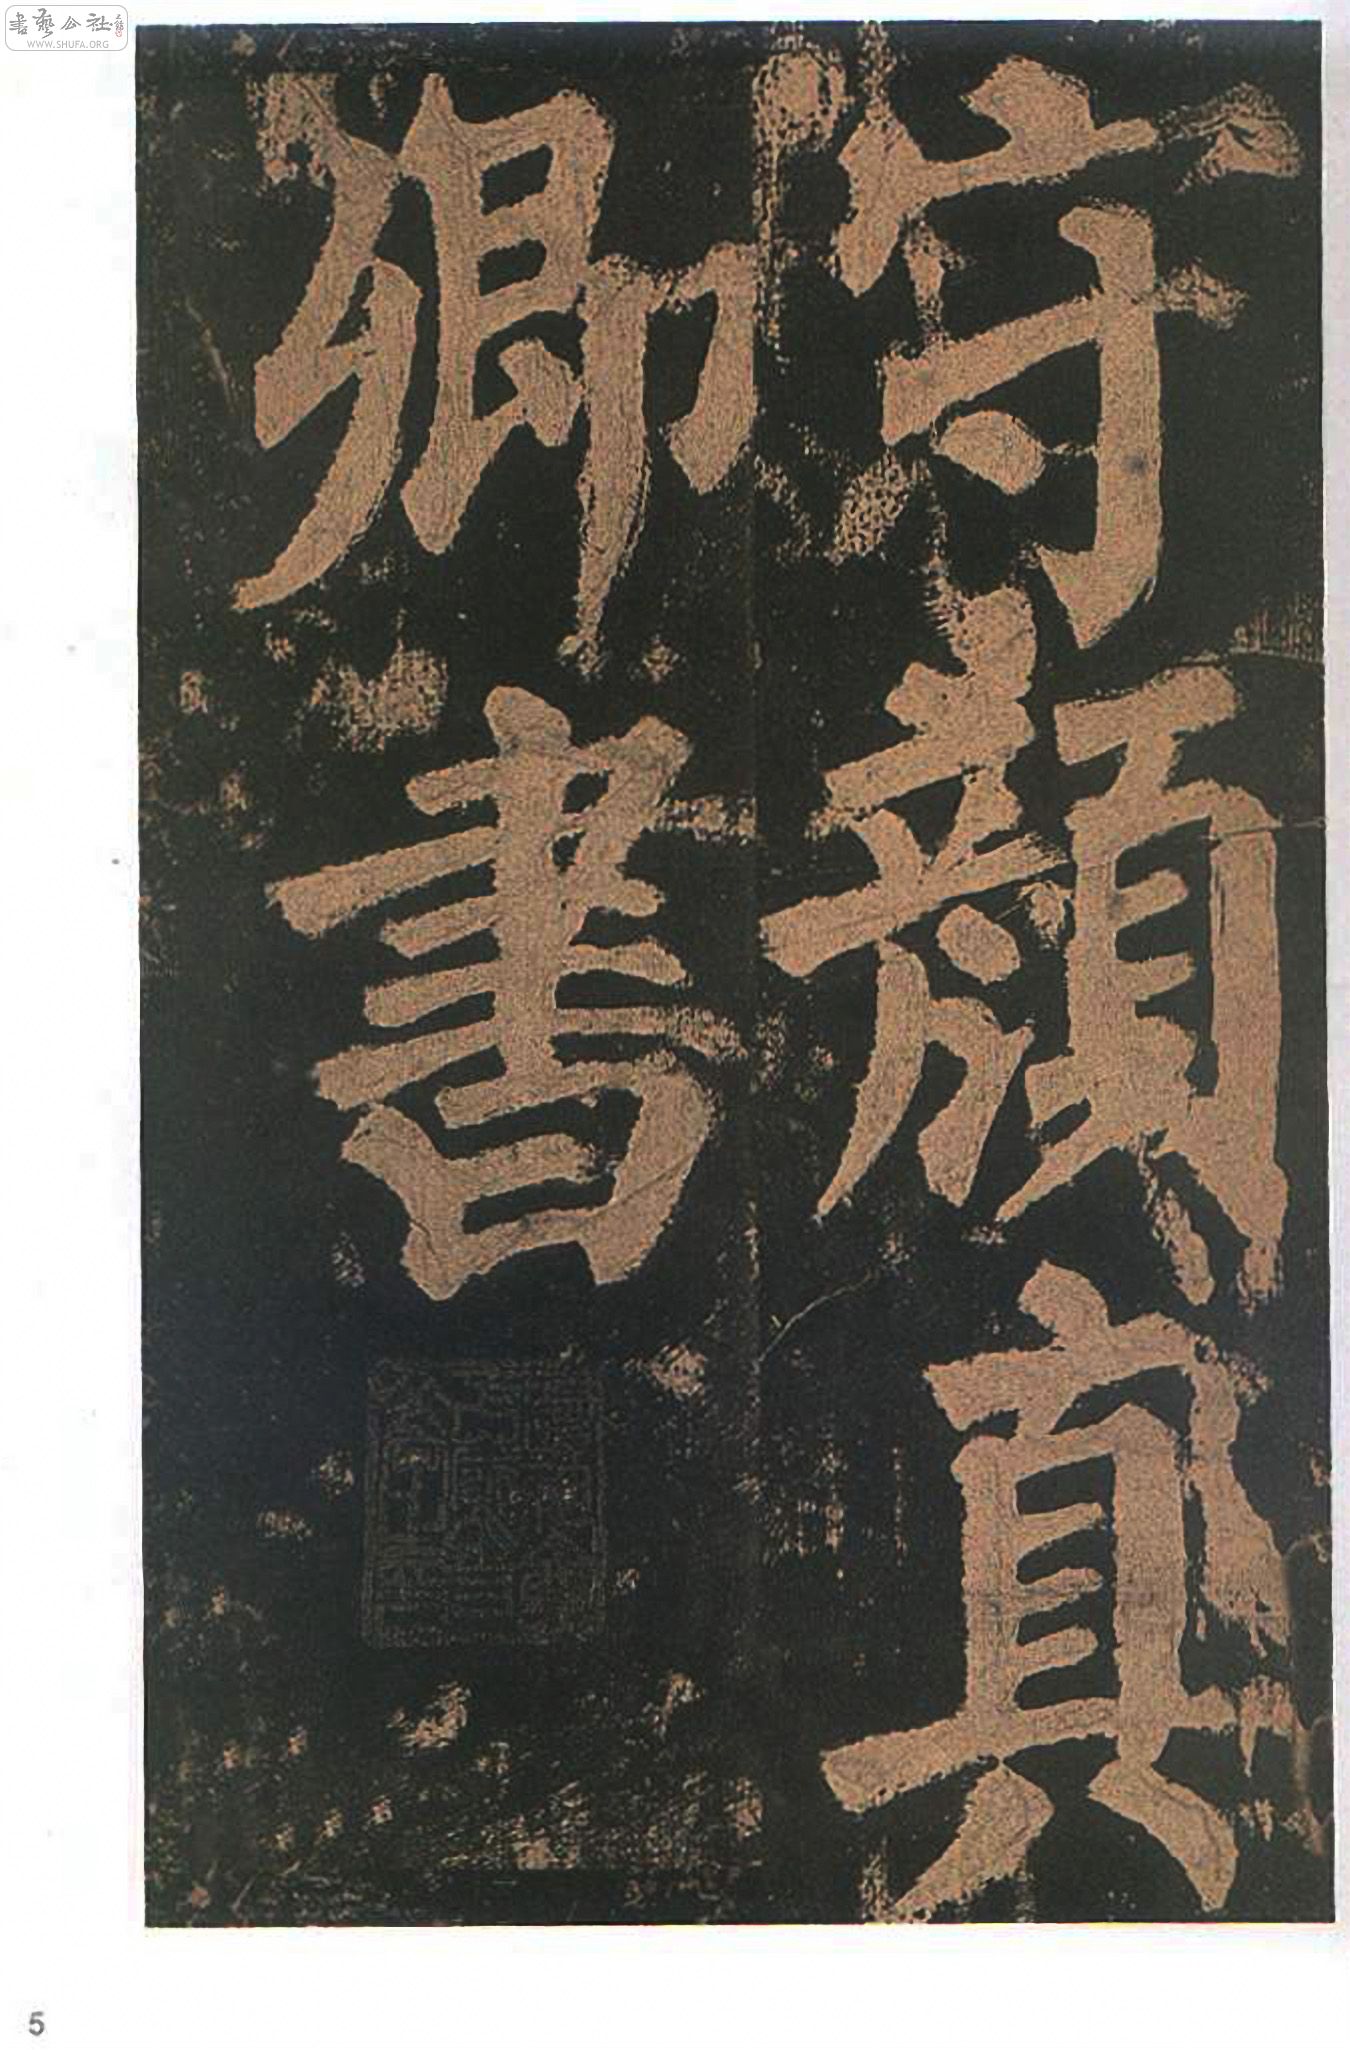 守顏真
卿書
書藝公社
WWW.SHUFA.ORG
5